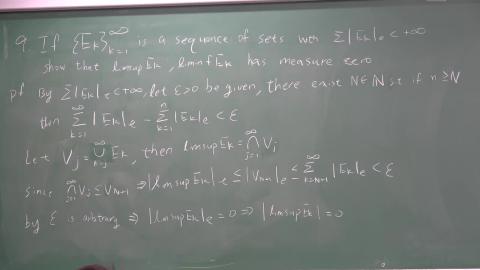 9. If {E_k}_{k=1}^∞ is a sequence of sets with Σ|E_k|_e < +∞
show that limsup E_k, liminf E_k has measure zero
pf By Σ|E_k|_e < +∞, let ε>0 be given, there exist N∈ℕ s.t if n≥N
then Σ_{k=1}^∞ |E_k|_e − Σ_{k=1}^n |E_k|_e < ε
Let V_j = ∪_{k=j}^∞ E_k, then limsup E_k = ∩_{j=1}^∞ V_j
Since ∩_{j=1}^∞ V_j ⊆ V_{N+1} ⇒ |limsup E_k|_e ≤ |V_{N+1}|_e ≤ Σ_{k=N+1}^∞ |E_k|_e < ε
by ε is arbitrary ⇒ |limsup E_k|_e = 0 ⇒ |limsup E_k| = 0